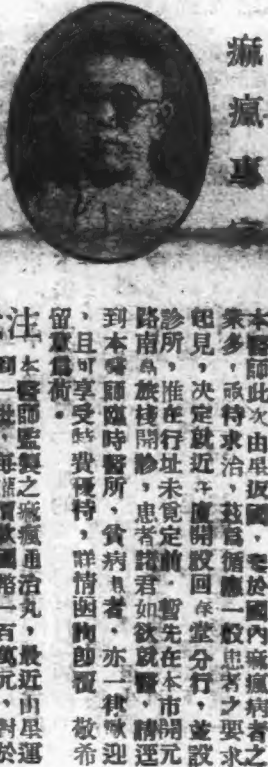 痲瘋專家
本醫師此次由星返國，鑒於國內痲瘋病者之
衆多，亟待求治，茲爲循應一般患者之要求
起見，決定就近在廈開設回春堂分行，並設
診所，惟在行址未覓定前，暫先在本市開元
路南島旅棧開診，患者諸君如欲就醫，請逕
到本醫師臨時醫所，貧病患者，亦一律歡迎
，且可享受特費優待，詳情函詢即覆　敬希
留意爲荷。
注　本醫師監製之痲瘋通治丸，最近由星運
到一批，每 國幣一百萬元，對於